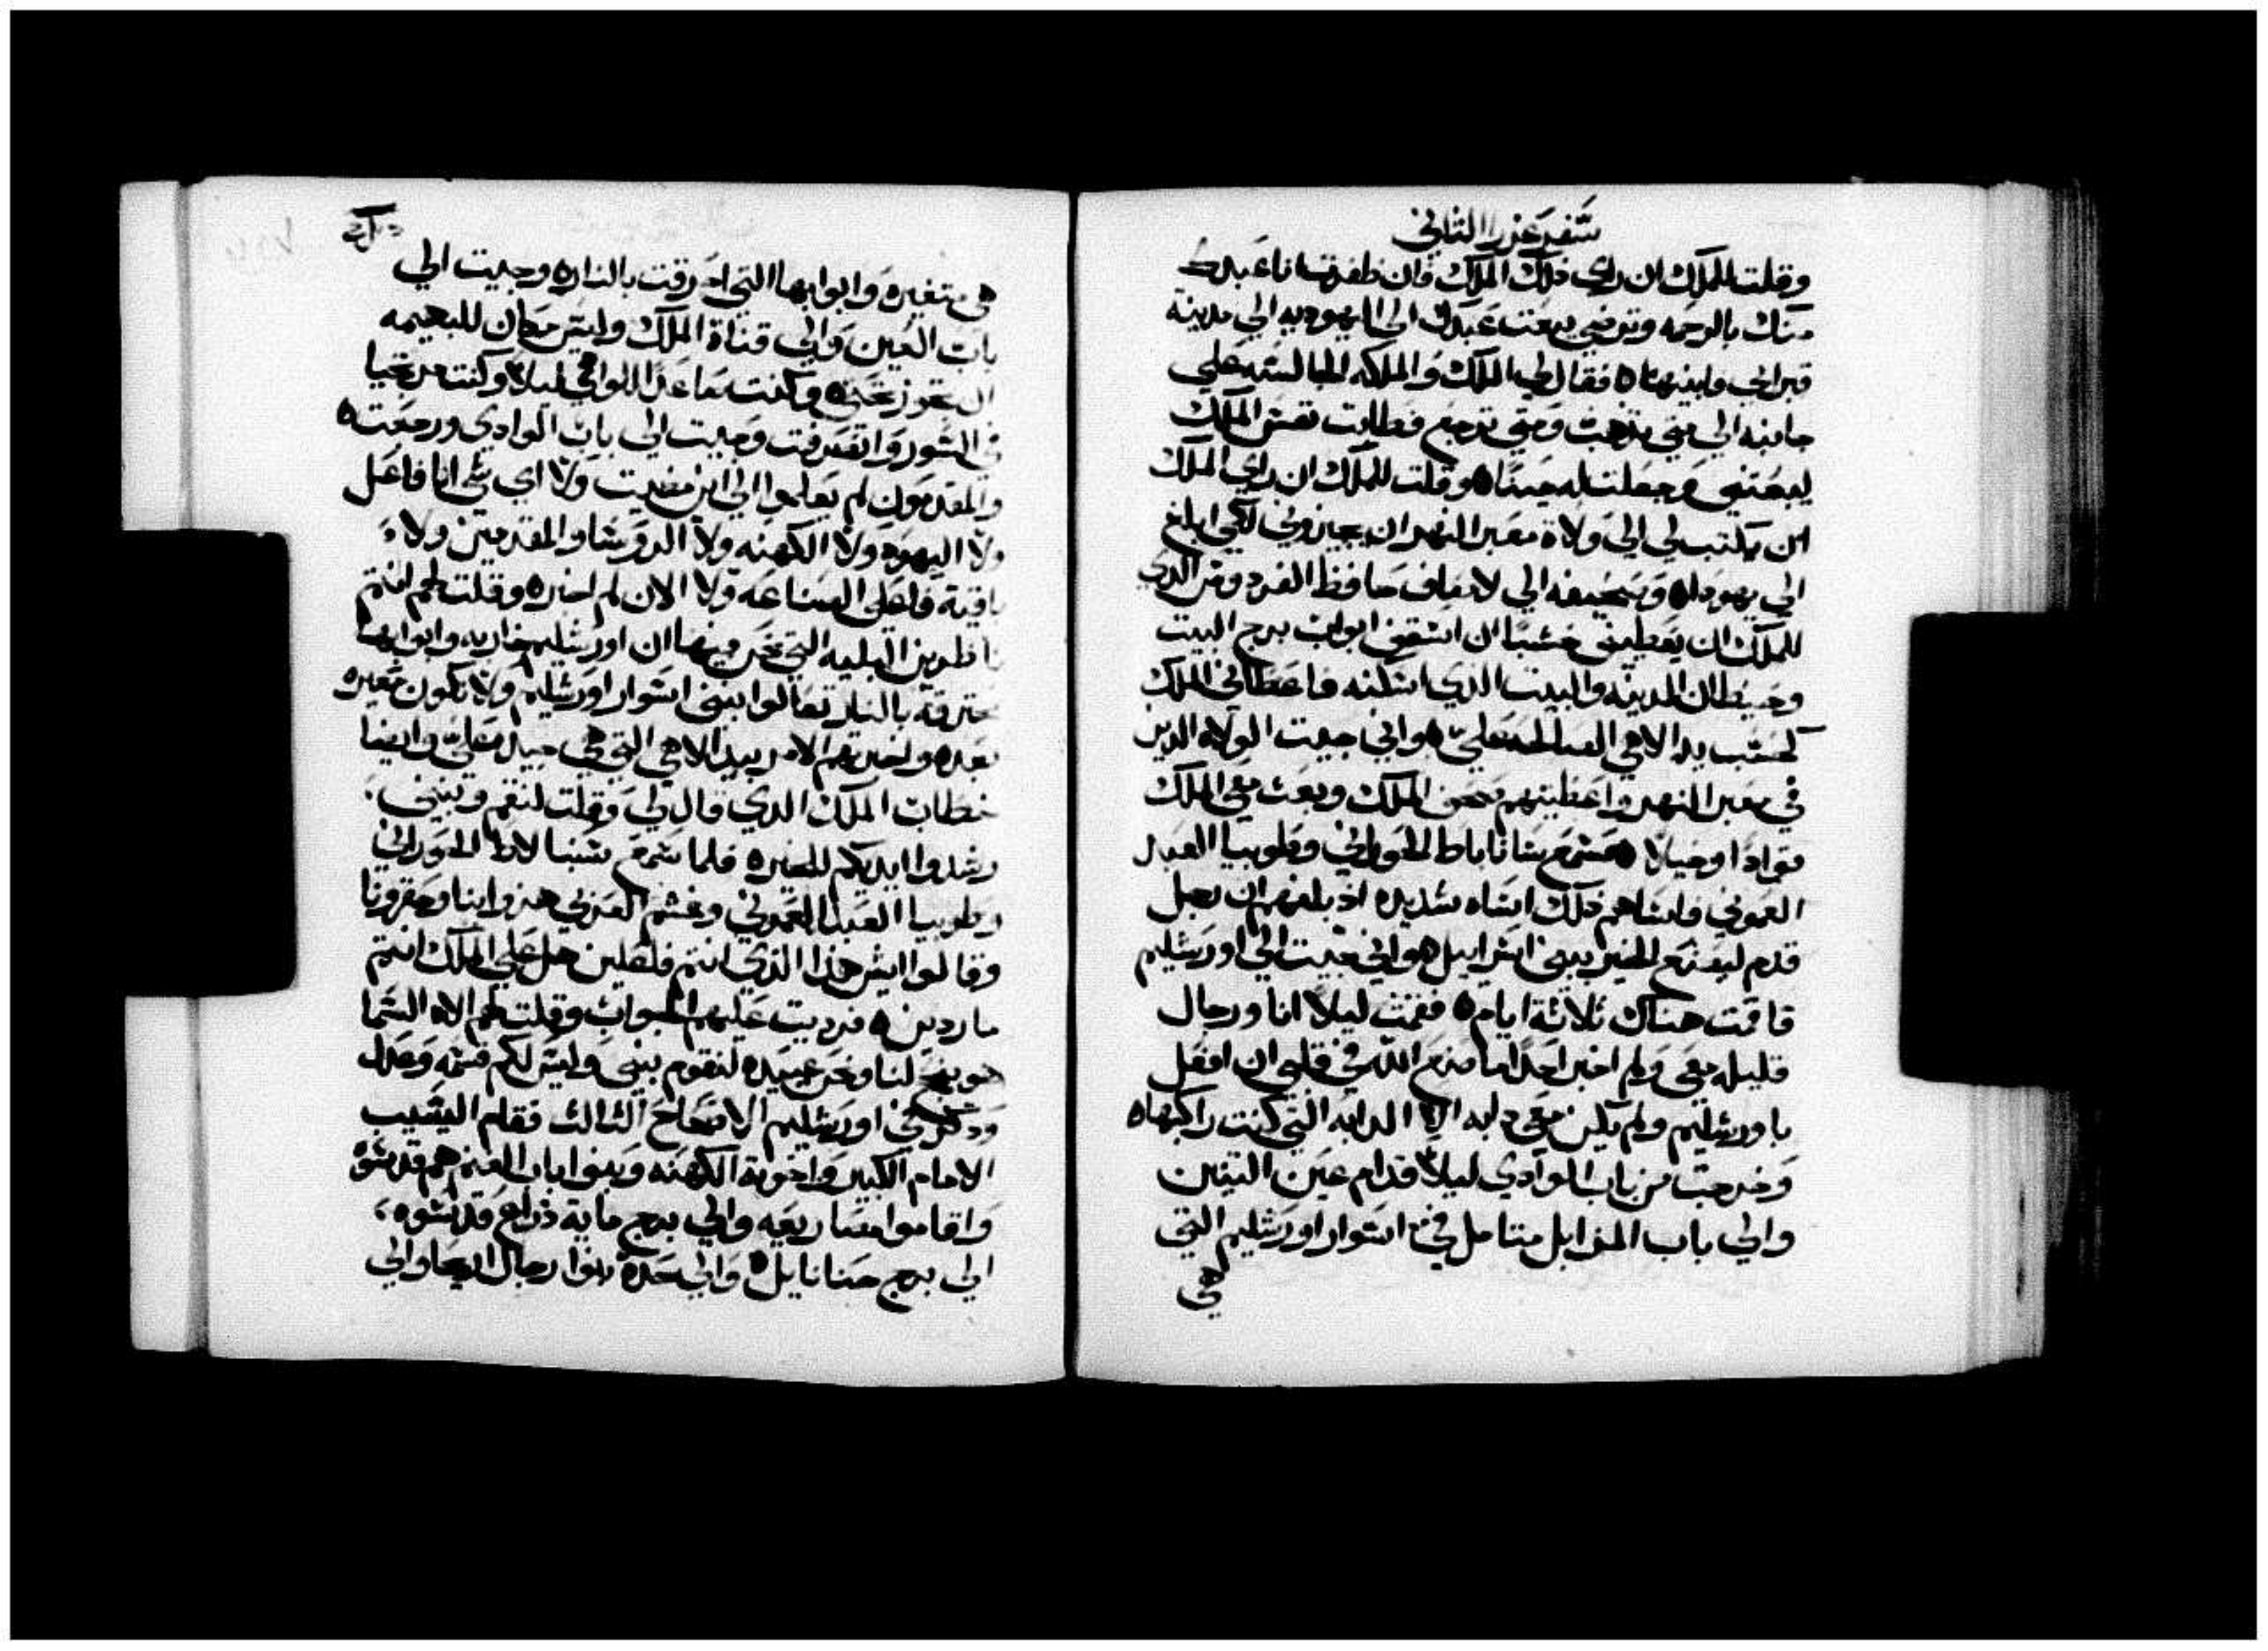 سفر عزرا الثاني
وقلت للملك ان راي ذلك الملك فان ظفرت انا عبدك
منك بالرحمه وترضي يبعت عبدك الي اليهوديه الي مدينة
قبر ابي وابنيها ٥ فقال لي الملك والملكه الجالسه علي
جانبه الي متي تذهب ومتي ترجع فطابت نفس الملك
ليبعتني وجعلت له حينًا ٥ وقلت للملك ان راي الملك
ان يكتب لي الي ولاة معبر النهر ان يجيزوني لكي ابلغ
الي يهودا ٥ وصحيفه الي لاساف حافظ الفردوس الذي
للملك ان يعطيني خشبًا ان اسقف ابواب برج البيت
وحيطان المدينه والبيت الذي اسكنه فاعطاني الملك
كحسب يد الاهي الصالحه علي ٥ واني جيت الولاه الذين
في معبر النهر واعطيتهم صحف الملك وبعث معي الملك
قوادًا وخيالا ٥ فسمع سانا باط الحوراني وطوبيا العبد
العموني فاساهم ذلك اساه شديده اذ بلغهم ان رجل
قدم ليصنع الخير ببني اسراييل ٥ واني جيت الي اورشليم
فاقمت هناك ثلاثة ايام ٥ فقمت ليلاً انا ورجال
قليله معي ولم اخبر احدًا ما صنع الله في قلبي ان افعل
باورشليم ولم يكن معي دابه الا الدابه التي كنت راكبها ٥
وخرجت من باب الوادي ليلاً قدام عين التنين
والي باب المزابل متامل في اسوار اورشليم التي
هي
هي متغيره وابوابها التي احترقت بالنار ٥ وجيت الي
باب العين والي قناة الملك وليس مكان للبهيمه
ان تجوز تحتي ٥ وكنت صاعدًا الوادي ليلاً وكنت مرتجيا
في السور وانصرفت وجيت الي باب الوادي ورجعت ٥
والمقدمون لم يعلموا الي اين مضيت ولا اي شي انا فاعل
ولا اليهود ولا الكهنه ولا الروسا والمقدمين ولا
باقية فاعلي الصناعه ولا الان لم اخبره وقلت لهم انتم
ناظرين البليه التي نحن فيها ان اورشليم خاربه وابوابها
محترقة بالنار تعالوا نبني اسوار اورشليم ولا نكون معيره
بعده واخبرتهم الامر بيد الاهي التي هي جيده علي وايضا
خطاب الملك الذي قال لي وقلت لنقم ونبني.
وشدوا ايديكم للخيره فلما سمع سنبا لاط الحوراني
وطوبيا العبد العموني وغشم العربي هزوا بنا وحقرونا
وقالوا ايش هذا الذي انتم فاعلين هل علي الملك انتم
ماردين ٥ فرديت عليهم الجواب وقلت لهم الاه السما
هو ينجح لنا ونحن عبيده لنقوم نبني وليس لكم قسمه وعدل
وذكر في اورشليم الاصحاح الثالث فقام اليشيب
الامام الكبير واخوته الكهنه وبنوا باب الغنم هم قدسوه
واقاموا مصاريعه والي برج ماية ذراع قدسوه،
الي برج حنانايل ٥ والي حده بنوا رجال اريحا والي